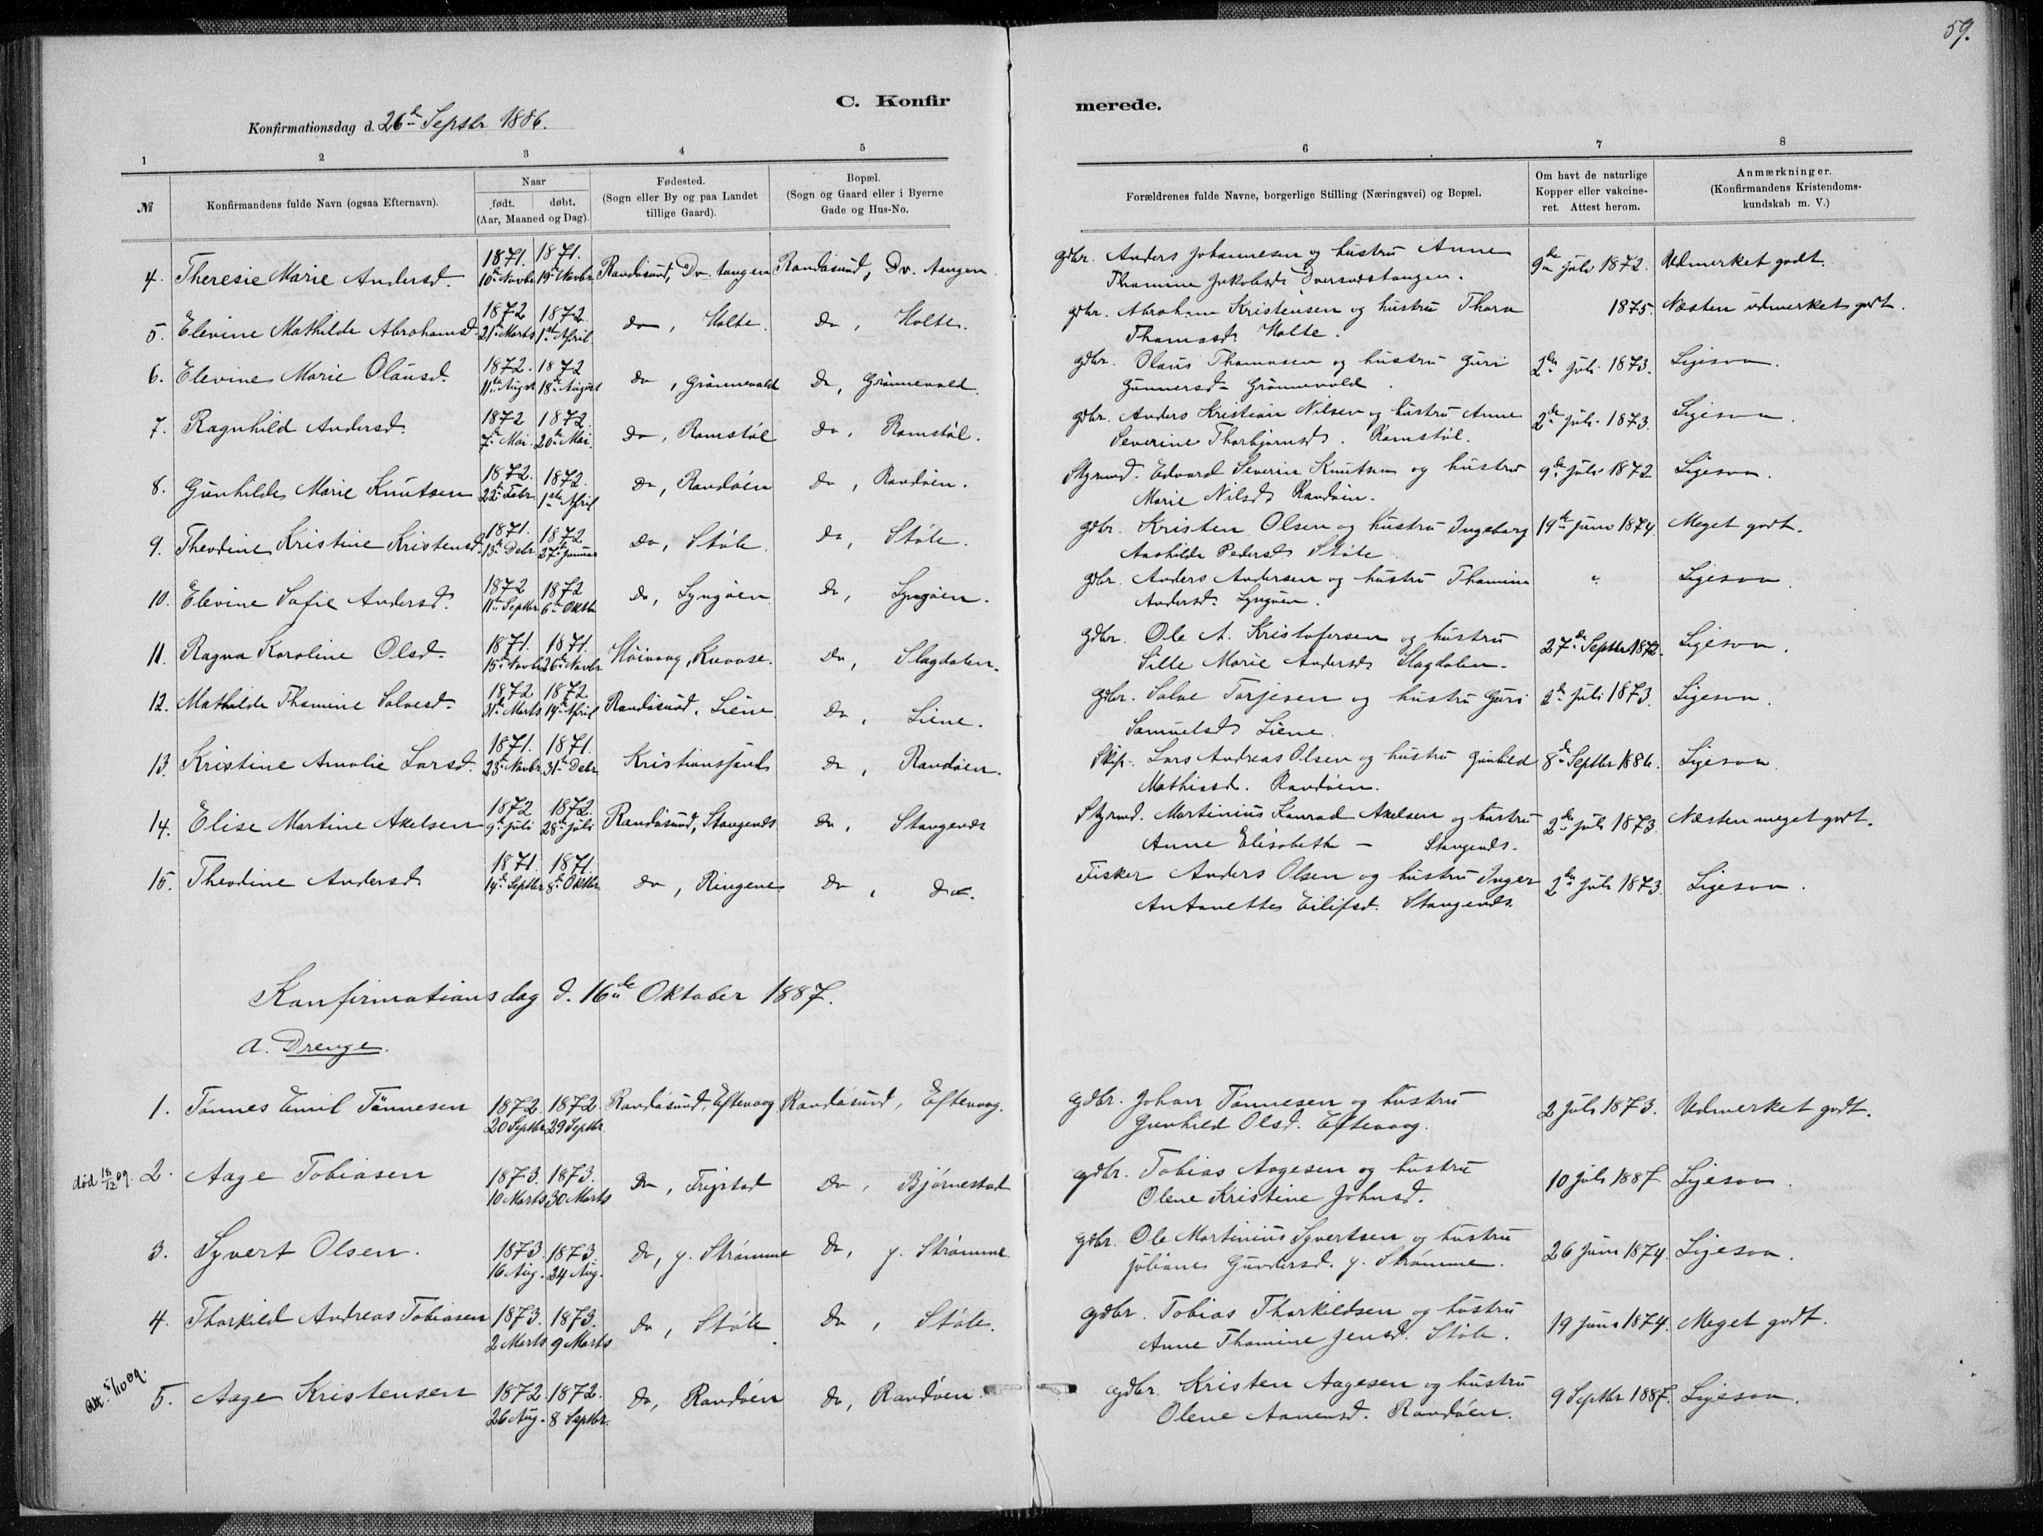 59.
C. Konfir
merede.
Konfirmationsdag d. 26de Septbr 1886.
1 2 3 4 5 6 7 8
№
Konfirmandens fulde Navn (ogsaa Efternavn).
Naar
født. døbt.
(Aar, Maaned og Dag).
Fødested.
(Sogn eller By og paa Landet
tillige Gaard).
Bopæl.
(Sogn og Gaard eller i Byerne
Gade og Hus-No.
Forældrenes fulde Navne, borgerlige Stilling (Næringsvei) og Bopæl.
Om havt de naturlige
Kopper eller vakcine-
ret. Attest herom.
Anmærkninger.
(Konfirmandens Kristendoms-
kundskab m. V.)
1871. 1871.
4. Theresie Marie Andersd. 10de Novbr 19de Novbr Randøsund, Dv. tangen Randøsund, Dv. tangen gdbr. Anders Johannesen og hustru Anne 9de juli 1872. Udmerket godt.
Thomine Jakobsd. Dversnestangen.
1872 1872.
5. Elevine Mathilde Abrahamsd. 21de Marts 1ste April do, Holte. do, Holte. gdbr. Abraham Kristensen og hustru Thora 1875. Næsten udmerket godt.
Thomasd. Holte.
1872. 1872
6. Elevine Marie Olausd. 11te August 18de August do, Grønnevold do, Grønnevold. gdbr. Olaus Thomasen og hustru Guri 2den juli 1873. Ligesaa.
Gunnersd. Grønnevold.
1872 1872.
7. Ragnhild Andersd. 7de Mai. 20de Mai. do, Ramstøl do, Ramstøl. gdbr. Anders Kristian Nilsen og hustru Anne 2den juli 1873. Ligesaa
Severine Thorbjørnsd. Ramstøl.
1872. 1872.
8. Gunhilde Marie Knutsen 22de Febr. 1ste April do, Randøen do, Randøen. Styrmd. Edvard Severin Knutsen og hustru 9de juli 1872 Ligesaa.
Marie Nilsd. Randøen.
1871. 1872.
9. Theodine Kristine Kristensd. 13de Debr. 27de Januar do, Støle. do, Støle. gdbr. Kristen Olsen og hustru Ingeborg 19de juni 1874. Meget godt.
Aashilde Pedersd. Støle
1872 1872
10. Elevine Sofie Andersd. 11te Septbr. 6te Oktbr. do, Lyngøen do, Lyngøen. gdbr. Anders Andersen og hustru Thomine " Ligesaa.
Andersd. Lyngøen.
1871. 1871.
11. Ragna Karoline Olsd. 15de Novbr 26de Novbr Høivaag, Kvaase. do, Slagdalen. gdbr. Ole A. Kristofersen og hustru 27de Septbr 1872. Ligesaa.
Sille Marie Andersd. Slagdalen.
1872 1872
12. Mathilde Thomine Salvesd. 31te Marts 14de April Randøsund, Liene. do, Liene. gdbr. Salve Torjesen og hustru Guri 2den juli 1873. Ligesaa.
Samuelsd. Liene.
1871. 1871.
13. Kristine Amalie Larsd. 23de Novbr. 31te Debr. Kristianssand do, Randøen. Skip. Lars Andreas Olsen og hustru Gunhild 8de Septbr 1886. Ligesaa.
Mathisd. Randøen.
1872 1872.
14. Elise Martine Axelsen 9de juli 28de juli Randøsund, Stangends do, Stangends Styrmd. Martinius Konrad Axelsen og hustru 2den juli 1873. Næsten meget godt.
Anne Elisabeth — Stangends.
1871. 1871.
15. Theodine Andersd. 14de Septbr. 8de Oktbr. do, Ringene do, do. Fisker Anders Olsen og hustru Inger 2den juli 1873. Ligesaa.
Antonette Eilifsd. Stangends.
Konfirmationsdag d. 16de Oktober 1887.
a. Drenge.
1. Tønnes Emil Tønnesen 1872. 1872. Randøsund, Eftevaag Randøsund, Eftevaag. gdbr. Johan Tønnesen og hustru 2 juli 1873. Udmerket godt.
20 Septbr. 29 Septbr. Gunhild Olsd. Eftevaag.
død 18/12 09. 2. Aage Tobiasen 1873. 1873. do, Frigstad do, Bjørnestad gdbr. Tobias Aagesen og hustru 10 juli 1887 Ligesaa.
10 Marts 30 Marts Olene Kristine Johnsd.
3. Syvert Olsen. 1873. 1873. do, y. Strømme do, y. Strømme. gdbr. Ole Martinius Syvertsen og hustru 26 juni 1874. Ligesaa.
16 Aug. 24 Aug. Juliane Gundersd. y. Strømme.
4. Thorkild Andreas Tobiasen 1873. 1873. do, Støle do, Støle. gdbr. Tobias Thorkildsen og hustru 19 juni 1874. Meget godt.
2 Marts 9 Marts Anne Thomine Jensd. Støle.
5/10 09. 5. Aage Kristensen 1872. 1872. do, Randøen do, Randøen. gdbr. Kristen Aagesen og hustru 9 Septbr 1887. Ligesaa.
26 Aug. 8 Septbr. Olene Aanensd. Randøen.